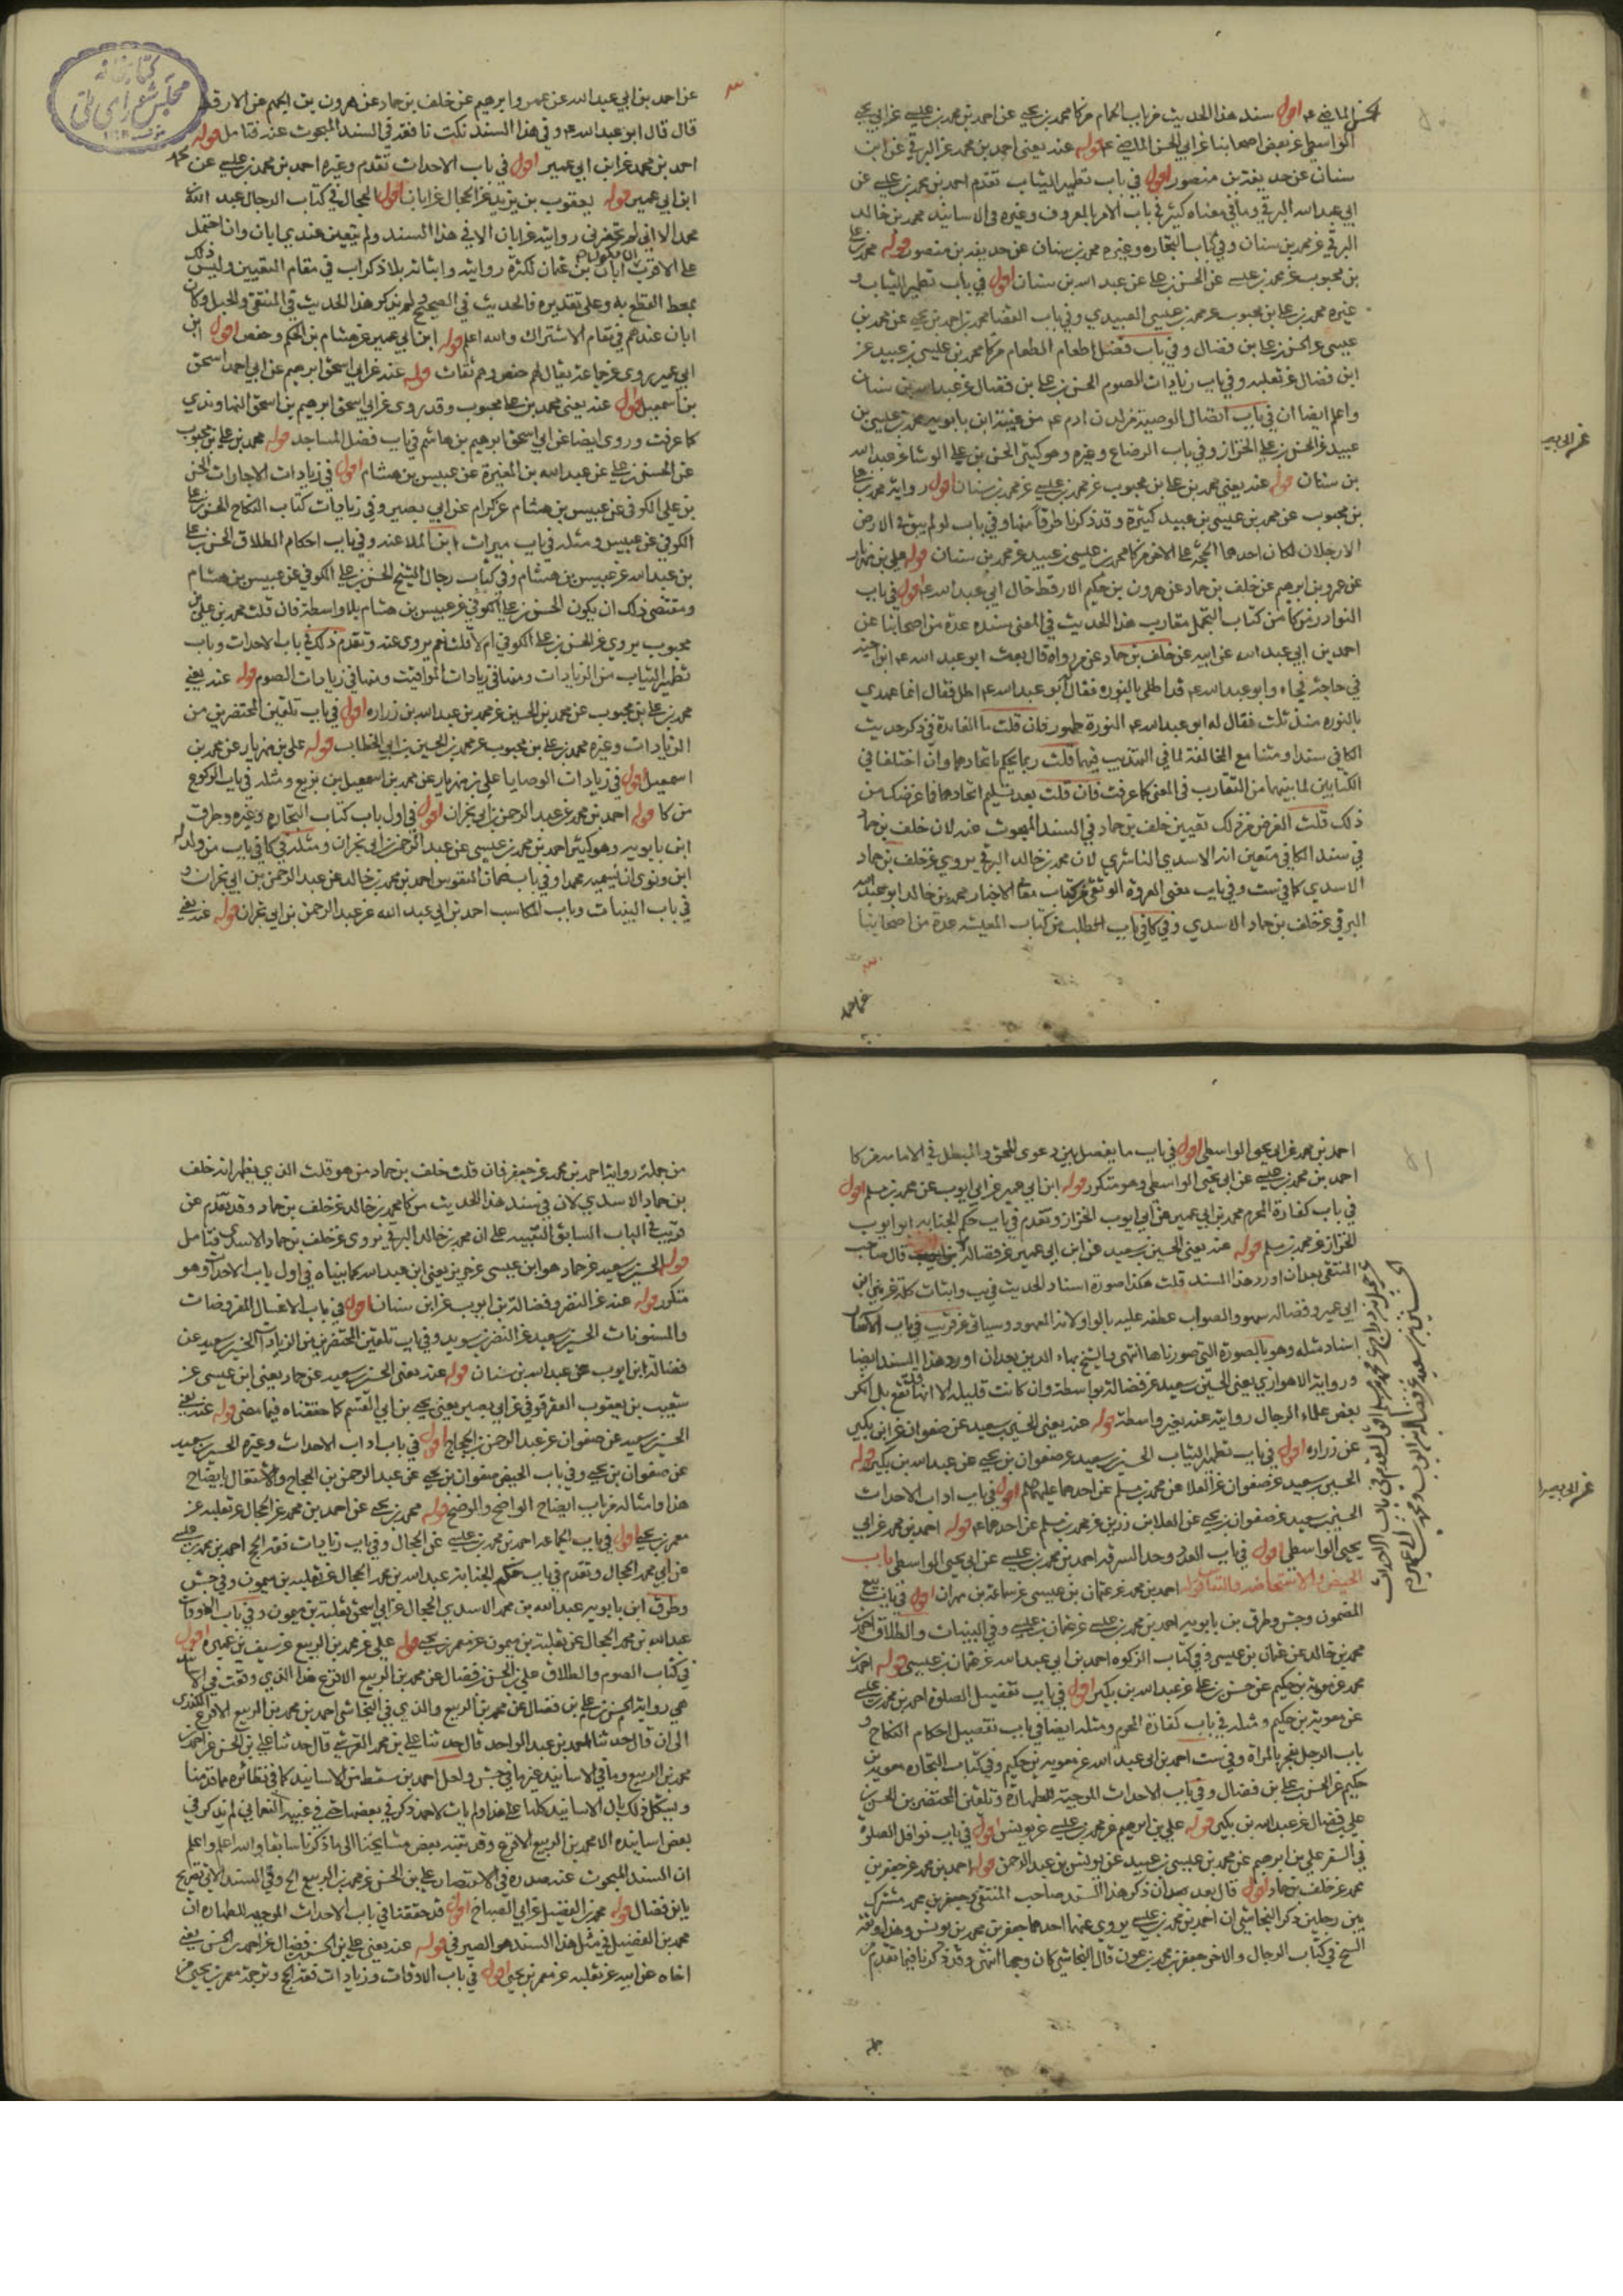 الحسن الماضي ع اقول سند هذا الحديث من باب الحمام من كا محمد بن يحيى عن احمد بن محمد بن عيسى عن ابي يحيى
الواسطي عن بعض اصحابنا عن ابي الحسن الماضي ع قوله عنه يعني احمد بن محمد عن البرقي عن ابن
سنان عن حذيفة بن منصور اقول في باب تطهير الثياب تقدم احمد بن محمد بن عيسى عن
ابي عبد الله البرقي وما في معناه كثير في باب الامر بالمعروف وغيره والاسانيد محمد بن خالد
البرقي عن محمد بن سنان وفي كتاب التجاره وغيره محمد بن سنان عن حذيفة بن منصور قوله محمد بن علي
بن محبوب عن محمد بن عيسى عن الحسن بن علي عن عبد الله بن سنان اقول في باب تطهير الثياب و
غيره محمد بن علي بن محبوب عن محمد بن عيسى العبيدي وفي باب القضا محمد بن احمد بن يحيى عن محمد بن
عيسى عن الحسن بن علي بن فضال وفي باب فضل اطعام الطعام من كا محمد بن عيسى بن عبيد عن
ابن فضال عن ثعلبه وفي باب زيادات الصوم الحسن بن علي بن فضال عن عبد الله بن سنان
واعلم ايضا ان في باب اتصال الوصية من لدن ادم ع من ابن بابويه محمد بن عيسى بن
عبيد عن الحسن بن علي الخزاز وفي باب الرضاع وغيره وهو كثير الحسن بن علي الوشا عن عبد الله
بن سنان قوله عنه يعني محمد بن علي بن محبوب عن محمد بن عيسى عن محمد بن سنان اقول رواية محمد بن علي
بن محبوب عن محمد بن عيسى بن عبيد كثيرة وقد ذكرنا طرفا منها وفي باب لو لم يبق في الارض
الا رجلان لكان احدهما الحجة على الاخر من كا محمد بن عيسى بن عبيد عن محمد بن سنان قوله علي بن مهزيار
عن عمرو بن ابرهيم عن خلف بن حماد عن هرون بن حكيم الارقط خال ابي عبد الله ع اقول في باب
النوادر من كا من كتاب التجمل مقارب هذا الحديث في المعنى سنده عدة من اصحابنا عن
احمد بن ابي عبد الله عن ابيه عن خلف بن حماد عن من رواه قال بعث ابو عبد الله ع ابن اخيه
في حاجة فجاء وابو عبد الله ع قد اطلى بالنوره فقال ابو عبد الله ع اطل فقال انما عهدي
بالنوره منذ ثلث فقال له ابو عبد الله ع النورة طهور فان قلت ما الفائدة في ذكر حديث
الكافي سندا ومتنا مع المخالفة لما في التهذيب فيهما قلت ربما يحكم باتحادهما وان اختلفا في
الكتابين لما بينهما من التقارب في المعنى كما عرفت فان قلت بعد تسليم اتحادهما فما غرضك من
ذلك قلت الغرض من ذلك تعيين خلف بن حماد في السند المبحوث عنه لان خلف بن حماد
في سند الكافي متعين انه الاسدي الناشري لان محمد بن خالد البرقي يروي عن خلف بن حماد
الاسدي كما في ست وفي باب معنى العروة الوثقى من كتاب معاني الاخبار محمد بن خالد ابو عبد الله
البرقي عن خلف بن حماد الاسدي وفي كا في باب الطلب من كتاب المعيشه عدة من اصحابنا
عن احمد
عن احمد بن ابي عبد الله عن عمرو بن ابرهيم عن خلف بن حماد عن هرون بن الحكم عن الارقط
قال قال ابو عبد الله ع وفي هذا السند نكت نافعة في السند المبحوث عنه فتامل قوله
احمد بن محمد عن ابن ابي عمير اقول في باب الاحداث تقدم وغيره احمد بن محمد بن عيسى عن محمد
ابن ابي عمير قوله يعقوب بن يزيد عن الحجال عن ابان اقول الحجال في كتاب الرجال عبد الله بن
محمد الا اني لم يحضرني روايته عن ابان الا في هذا السند ولم يتعين عندي ابان وان احتمل
على الاقرب ان يكون ابان بن عثمان لكثرة روايته وايثاره بلا ذكر اب في مقام التعيين وليس ذلك
بمحط القطع به وعلى تقديره فالحديث في الصحيح ولم يذكر هذا الحديث في المنتقى والحبل وكان
ابان عندهم في مقام الاشتراك والله اعلم قوله ابن ابي عمير عن هشام بن الحكم وحفص اقول ابن
ابي عمير يروي عن جماعة يقال لهم حفص وهم ثقات قوله عنه عن ابي اسحق ابرهيم عن ابي احمد اسحق
بن اسمعيل اقول عنه يعني محمد بن علي بن محبوب وقد روى عن ابي اسحق ابرهيم بن اسحق النهاوندي
كما عرفت وروى ايضا عن ابي اسحق ابرهيم بن هاشم في باب فضل المساجد قوله محمد بن علي بن محبوب
عن الحسن بن علي عن عبد الله بن المغيرة عن عبيس بن هشام اقول في زيادات الاجارات الحسن
بن علي الكوفي عن عبيس بن هشام عن كرام عن ابي بصير وفي زيادات كتاب النكاح الحسن بن علي
الكوفي عن عبيس ومثله في باب ميراث ابن الملاعنه وفي باب احكام الطلاق الحسن بن علي
بن عبد الله عن عبيس بن هشام وفي كتاب رجال الشيخ الحسن بن علي الكوفي عن عبيس بن هشام
ومقتضى ذلك ان يكون الحسن بن علي الكوفي عن عبيس بن هشام بلا واسطة فان قلت محمد بن علي بن
محبوب يروي عن الحسن بن علي الكوفي ام لا قلت نعم يروي عنه وتقدم ذلك في باب الاحداث وباب
تطهير الثياب من الزيادات ومضى في زيادات المواقيت ومضى في زيادات الصوم قوله عنه يعني
محمد بن علي بن محبوب عن محمد بن الحسين عن محمد بن عبد الله بن زراره اقول في باب تلقين المحتضرين من
الزيادات وغيره محمد بن علي بن محبوب عن محمد بن الحسين بن ابي الخطاب قوله علي بن مهزيار عن محمد بن
اسمعيل اقول في زيادات الوصايا علي بن مهزيار عن محمد بن اسمعيل بن بزيع ومثله في باب الركوع
من كا قوله احمد بن محمد عن عبد الرحمن بن ابي نجران اقول في اول باب كتاب التجاره وغيره وطرق
ابن بابويه وهو كثير احمد بن محمد بن عيسى عن عبد الرحمن بن ابي نجران ومثله في كا في باب من ولد له
ابن ونوى ان يسميه محمدا وفي باب ضمان النفوس احمد بن محمد بن خالد عن عبد الرحمن بن ابي نجران و
في باب البينات وباب المكاسب احمد بن ابي عبد الله عن عبد الرحمن بن ابي نجران قوله عنه يعني
احمد بن محمد عن ابي يحيى الواسطي اقول في باب ما يفصل بين دعوى المحق والمبطل في الامامه من كا
احمد بن محمد بن عيسى عن ابي يحيى الواسطي وهو متكرر قوله ابن ابي عمير عن ابي ايوب عن محمد بن مسلم اقول
في باب كفارة المحرم محمد بن ابي عمير عن ابي ايوب الخزاز وتقدم في باب حكم الجنابه ابو ايوب
الخزاز عن محمد بن مسلم قوله عنه يعني الحسين بن سعيد عن ابن ابي عمير عن فضاله قال صاحب
المنتقى بعد ان اورد هذا السند قلت هكذا صورة اسناد الحديث في يب واثبات كلمة عن بين ابن
ابي عمير وفضاله سهو والصواب عطفه عليه بالواو لانه المعهود وسياتي عن قريب في باب الاكفان
اسناد مثله وهو بالصورة التي صورناها انتهى والشيخ بهاء الدين بعد ان اورد هذا السند ايضا
ورواية الاهوازي يعني الحسين بن سعيد عن فضاله بواسطة وان كانت قليلة الا انها تقع بل انكر
بعض علماء الرجال روايته عنه بغير واسطة قوله عنه يعني الحسين بن سعيد عن صفوان عن ابن بكير
عن زراره اقول في باب تطهير الثياب الحسين بن سعيد عن صفوان بن يحيى عن عبد الله بن بكير قوله
الحسين بن سعيد عن صفوان عن العلا عن محمد بن مسلم عن احدهما عليهما السلام اقول في باب اداب الاحداث
الحسين بن سعيد عن صفوان بن يحيى عن العلا بن رزين عن محمد بن مسلم عن احدهما ع قوله احمد بن محمد عن ابي
يحيى الواسطي اقول في باب العدد وحد السرقه احمد بن محمد بن عيسى عن ابي يحيى الواسطي باب
الحيض والاستحاضه والنفاس قوله احمد بن محمد عن عثمان بن عيسى عن سماعة بن مهران اقول في باب بيع
المضمون وجش وطرق بن بابويه احمد بن محمد بن عيسى عن عثمان بن عيسى وفي البينات والطلاق احمد بن
محمد بن خالد عن عثمان بن عيسى وفي كتاب الزكوه احمد بن ابي عبد الله عن عثمان بن عيسى قوله احمد بن
محمد عن معوية بن حكيم عن حسن بن علي عن عبد الله بن بكير اقول في باب تفصيل الصلوة احمد بن محمد بن عيسى
عن معوية بن حكيم ومثله في باب كفارة المحرم ومثله ايضا في باب تفصيل احكام النكاح و
باب الرجل يفجر بالمراة وفي ست احمد بن ابي عبد الله عن معويه بن حكيم وفي كتاب التجاره معوية بن
حكيم عن الحسن بن علي بن فضال وفي باب الاحداث الموجبة للطهارة وتلقين المحتضرين الحسن بن
علي بن فضال عن عبد الله بن بكير قوله علي بن ابرهيم عن محمد بن عيسى عن يونس اقول في باب نوافل الصلوة
في السفر علي بن ابرهيم عن محمد بن عيسى بن عبيد عن يونس بن عبد الرحمن قوله احمد بن محمد عن جعفر بن
محمد عن خلف بن حماد اقول قال بعد ان ذكر هذا السند صاحب المنتقى جعفر بن محمد مشترك
بين رجلين ذكر النجاشي ان احمد بن محمد بن عيسى يروي عنهما احدهما جعفر بن محمد بن يونس وهذا وثقه
الشيخ في كتاب الرجال والاخر جعفر بن محمد بن عون قال النجاشي كان وجها انتهى وقد ذكرنا فيما تقدم
من جملة رواية احمد بن محمد عن جعفر فان قلت خلف بن حماد من هو قلت الذي يظهر انه خلف
بن حماد الاسدي لان في سند هذا الحديث من كا محمد بن خالد عن خلف بن حماد وقد تقدم عن
قريب في الباب السابق التنبيه على ان محمد بن خالد البرقي يروي عن خلف بن حماد الاسدي فتامل
قوله الحسين بن سعيد عن حماد هو ابن عيسى عن حريز يعني ابن عبد الله كما بيناه في اول باب الاحداث وهو
متكرر قوله عنه عن النضر وفضالة بن ايوب عن ابن سنان اقول في باب الاغسال المفروضات
والمسنونات الحسين بن سعيد عن النضر بن سويد وفي باب تلقين المحتضرين من الزيادات الحسين بن سعيد عن
فضالة ابن ايوب عن عبد الله بن سنان قوله عنه يعني الحسين بن سعيد عن حماد يعني ابن عيسى عن
شعيب بن يعقوب العقرقوفي عن ابي بصير يعني يحيى بن ابي القسم كما حققناه فيما مضى قوله عنه يعني
الحسين بن سعيد عن صفوان عن عبد الرحمن بن الحجاج اقول في باب اداب الاحداث وغيره الحسين بن سعيد
عن صفوان بن يحيى وفي باب الحيض صفوان بن يحيى عن عبد الرحمن بن الحجاج والاشتغال بايضاح
هذا وامثاله من باب ايضاح الواضح والوضيح قوله محمد بن يحيى عن احمد بن محمد عن الحجال عن ثعلبه عن
معمر بن يحيى اقول في باب الجماعه احمد بن محمد بن عيسى عن الحجال وفي باب زيادات فقه الحج احمد بن محمد بن عيسى
عن ابي محمد الحجال وتقدم في باب حكم الجنابة عبد الله بن محمد الحجال عن ثعلبه بن ميمون وفي جش
وطرق ابن بابويه عبد الله بن محمد الاسدي الحجال عن ابي اسحق ثعلبة بن ميمون وفي باب الاوقات
عبد الله بن محمد الحجال عن ثعلبة بن ميمون عن معمر بن يحيى قوله علي عن محمد بن الربيع عن سيف بن عميرة اقول
في كتاب الصوم والطلاق علي بن الحسن بن فضال عن محمد بن الربيع الاقرع هذا الذي وقفت في الاسانيد
هي رواية الحسن بن علي بن فضال عن محمد بن الربيع والذي في النجاشي احمد بن محمد بن الربيع الاقرع الكندي
الى ان قال حدثنا احمد بن عبد الواحد قال حدثنا علي بن محمد القرشي قال حدثنا علي بن الحسن عن احمد بن
محمد بن الربيع وما في الاسانيد غير ما في جش ولعل احمد بن سقط من الاسانيد كما في نظائره مما قدمنا
ويشكل ذلك بان الاسانيد كلها على هذا ولم يات لاحمد ذكر في بعضها حتى في غيبة النعماني لم يذكر في
بعض اسانيده الا محمد بن الربيع الاقرع وقد تنبه بعض مشايخنا الى ما ذكرنا سابقا والله اعلم واعلم
ان السند المبحوث عنه صدره في الاستبصار علي بن الحسن عن محمد بن الربيع الخ وفي السند الاتي تصريح
بابن فضال قوله محمد بن الفضيل عن ابي الصباح اقول قد حققنا في باب الاحداث الموجبه للطهاره ان
محمد بن الفضيل في مثل هذا السند هو الصيرفي قوله عنه يعني علي بن الحسن بن فضال عن احمد بن الحسن يعني
اخاه عن ابيه عن ثعلبه عن معمر بن يحيى اقول في باب الاوقات وزيادات فقه الحج وترجمة معمر بن يحيى من